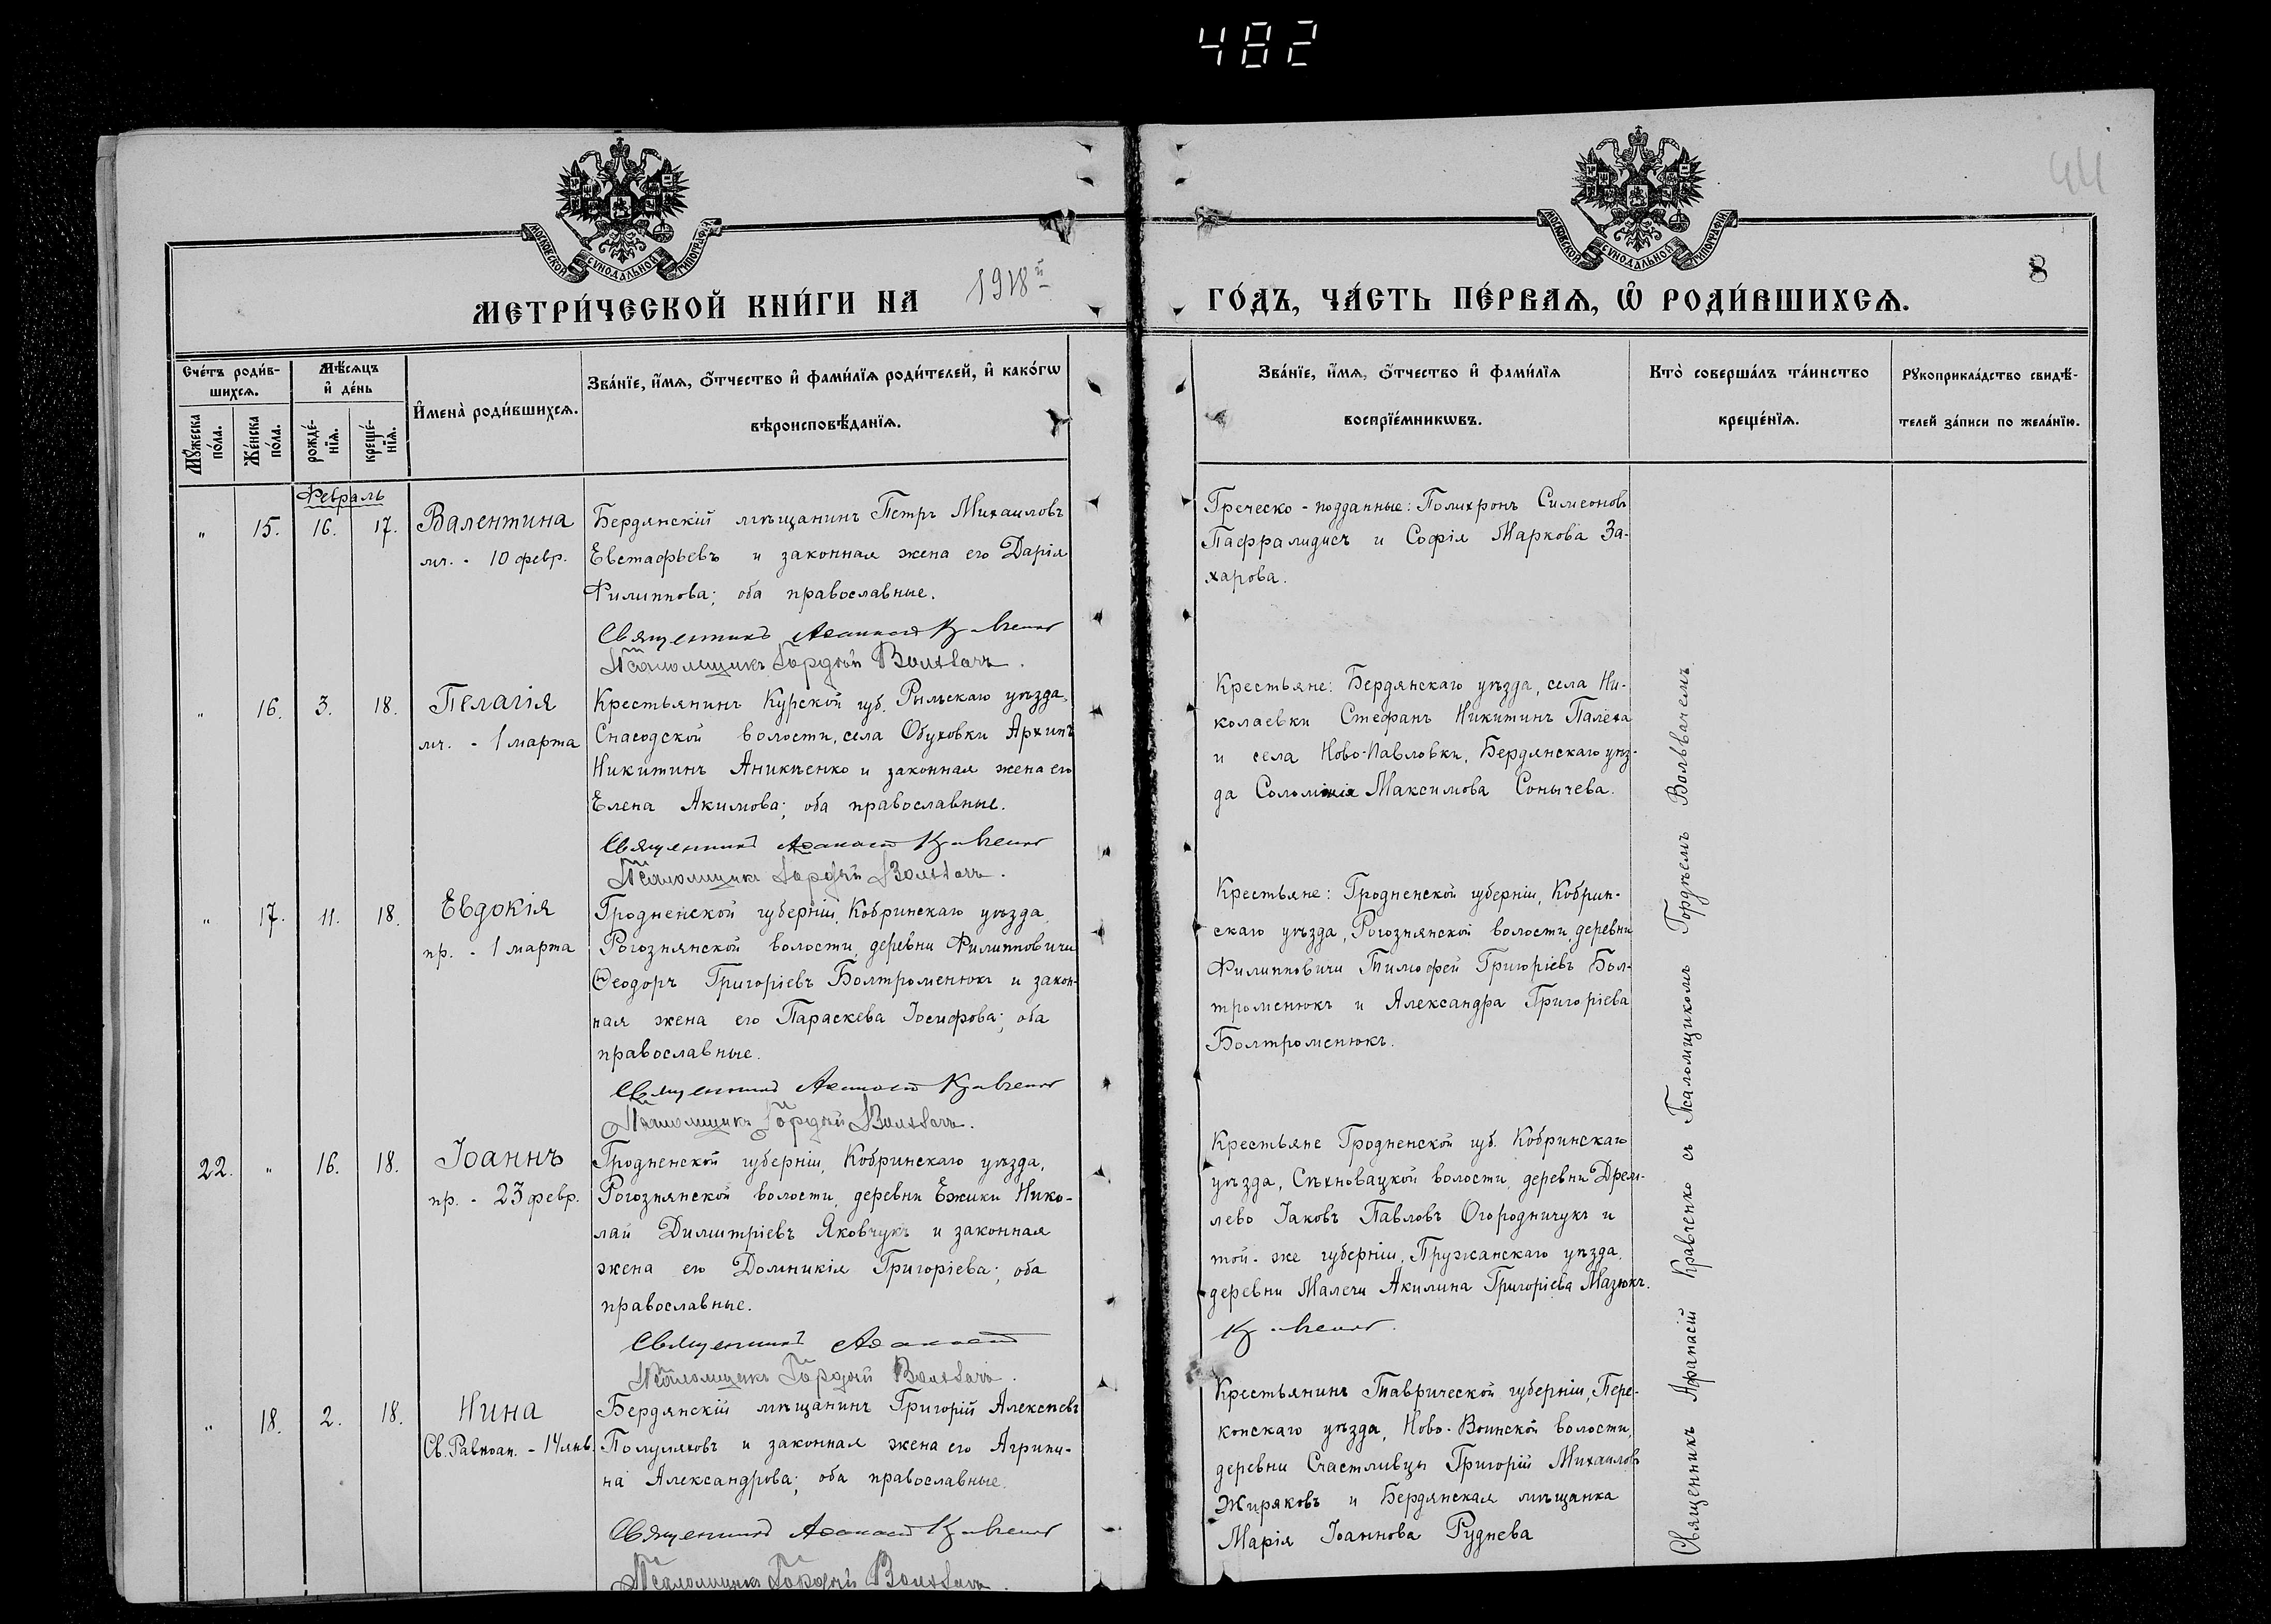 482
44
МОСКОВСКОЙ СѴНОДАЛЬНОЙ ТИПОГРАФІИ
МОСКОВСКОЙ СѴНОДАЛЬНОЙ ТИПОГРАФІИ
8
МЕТРИ́ЧЕСКОЙ КНИ́ГИ НА 1918й
ГО́ДЪ, ЧА́СТЬ ПЕ́РВАѦ, Ѿ РОДИ́ВШИХСѦ.
Сче́тъ роди́в-
шихсѧ.
Мꙋ́жеска по́ла.
Же́нска по́ла.
Мѣ́сяцъ
и҆ де́нь
рожде́-
нїѧ.
креще́-
нїѧ.
И҆мена̀ роди́вшихсѧ.
Зва́нїе, и҆́мѧ, ѻ҆́тчество и҆ фами́лїѧ роди́телей, и҆ како́гѡ
вѣроисповѣ́данїѧ.
Зва́нїе, и҆́мѧ, ѻ҆́тчество и҆ фами́лїѧ
воспрїе́мникѡвъ.
Кто̀ соверша́лъ та́инство
креще́нїѧ.
Рꙋкоприкла́дство свидѣ́-
телей за́писи по жела́нїю.
Февраль
" 15. 16. 17.
Валентина
мч. - 10 февр.
Бердянскій мѣщанинъ Петръ Михаиловъ
Евстафьевъ и законная жена его Дарія
Филиппова; оба православные.
Священникъ Афанасій Кравченко
Псаломщикъ Гордѣй Вольвачъ.
Греческо-подданные: Полихронъ Симеоновъ
Пафралидисъ и Софія Маркова За-
харова.
" 16. 3. 18.
Пелагія
мч. - 1 марта
Крестьянинъ Курской губ. Рыльскаго уѣзда,
Снагодской волости, села Обуховки Архипъ
Никитинъ Аникѣенко и законная жена его
Елена Акимова; оба православные.
Священникъ Афанасій Кравченко
Псаломщикъ Гордѣй Вольвачъ.
Крестьяне: Бердянскаго уѣзда, села Ни-
колаевки Стефанъ Никитинъ Палеха
и села Ново-Павловки, Бердянскаго уѣз-
да Соломонія Максимова Сонычева.
" 17. 11. 18.
Евдокія
пр. - 1 марта
Гродненской губерніи, Кобринскаго уѣзда,
Рогознянской волости, деревни Филипповичи
Ѳеодоръ Григоріевъ Болтроменюкъ и закон-
ная жена его Параскева Іосифова; оба
православные.
Священникъ Афанасій Кравченко
Псаломщикъ Гордѣй Вольвачъ.
Крестьяне: Гродненской губерніи, Кобрин-
скаго уѣзда, Рогознянской волости, деревни
Филипповичи Тимофей Григоріевъ Бол-
троменюкъ и Александра Григоріева
Болтроменюкъ.
22. " 16. 18.
Іоаннъ
пр. - 23 февр.
Гродненской губерніи, Кобринскаго уѣзда,
Рогознянской волости, деревни Ежики Нико-
лай Димитріевъ Яковчукъ и законная
жена его Домникія Григоріева; оба
православные.
Священникъ Афанасій
Псаломщикъ Гордѣй Вольвачъ.
Крестьяне Гродненской губ. Кобринскаго
уѣзда, Сѣхновацкой волости, деревни Дрем-
лево Іаковъ Павловъ Огородничукъ и
той-же губерніи, Пружанскаго уѣзда,
деревни Малечи Акилина Григоріева Мазюкъ.
Кравченко.
" 18. 2. 18.
Нина
Св. Равноап. - 14 янв.
Бердянскій мѣщанинъ Григорій Алексѣевъ
Полуляховъ и законная жена его Агрипи-
на Александрова; оба православные.
Священникъ Афанасій Кравченко
Псаломщикъ Гордѣй Вольвачъ.
Крестьянинъ Таврической губерніи, Пере-
копскаго уѣзда, Ново-Воинской волости,
деревни Счастливцы Григорій Михаиловъ
Жиряковъ и Бердянская мѣщанка
Марія Іоаннова Руднева
Священникъ Афанасій Кравченко съ Псаломщикомъ Гордѣемъ Вольвачемъ